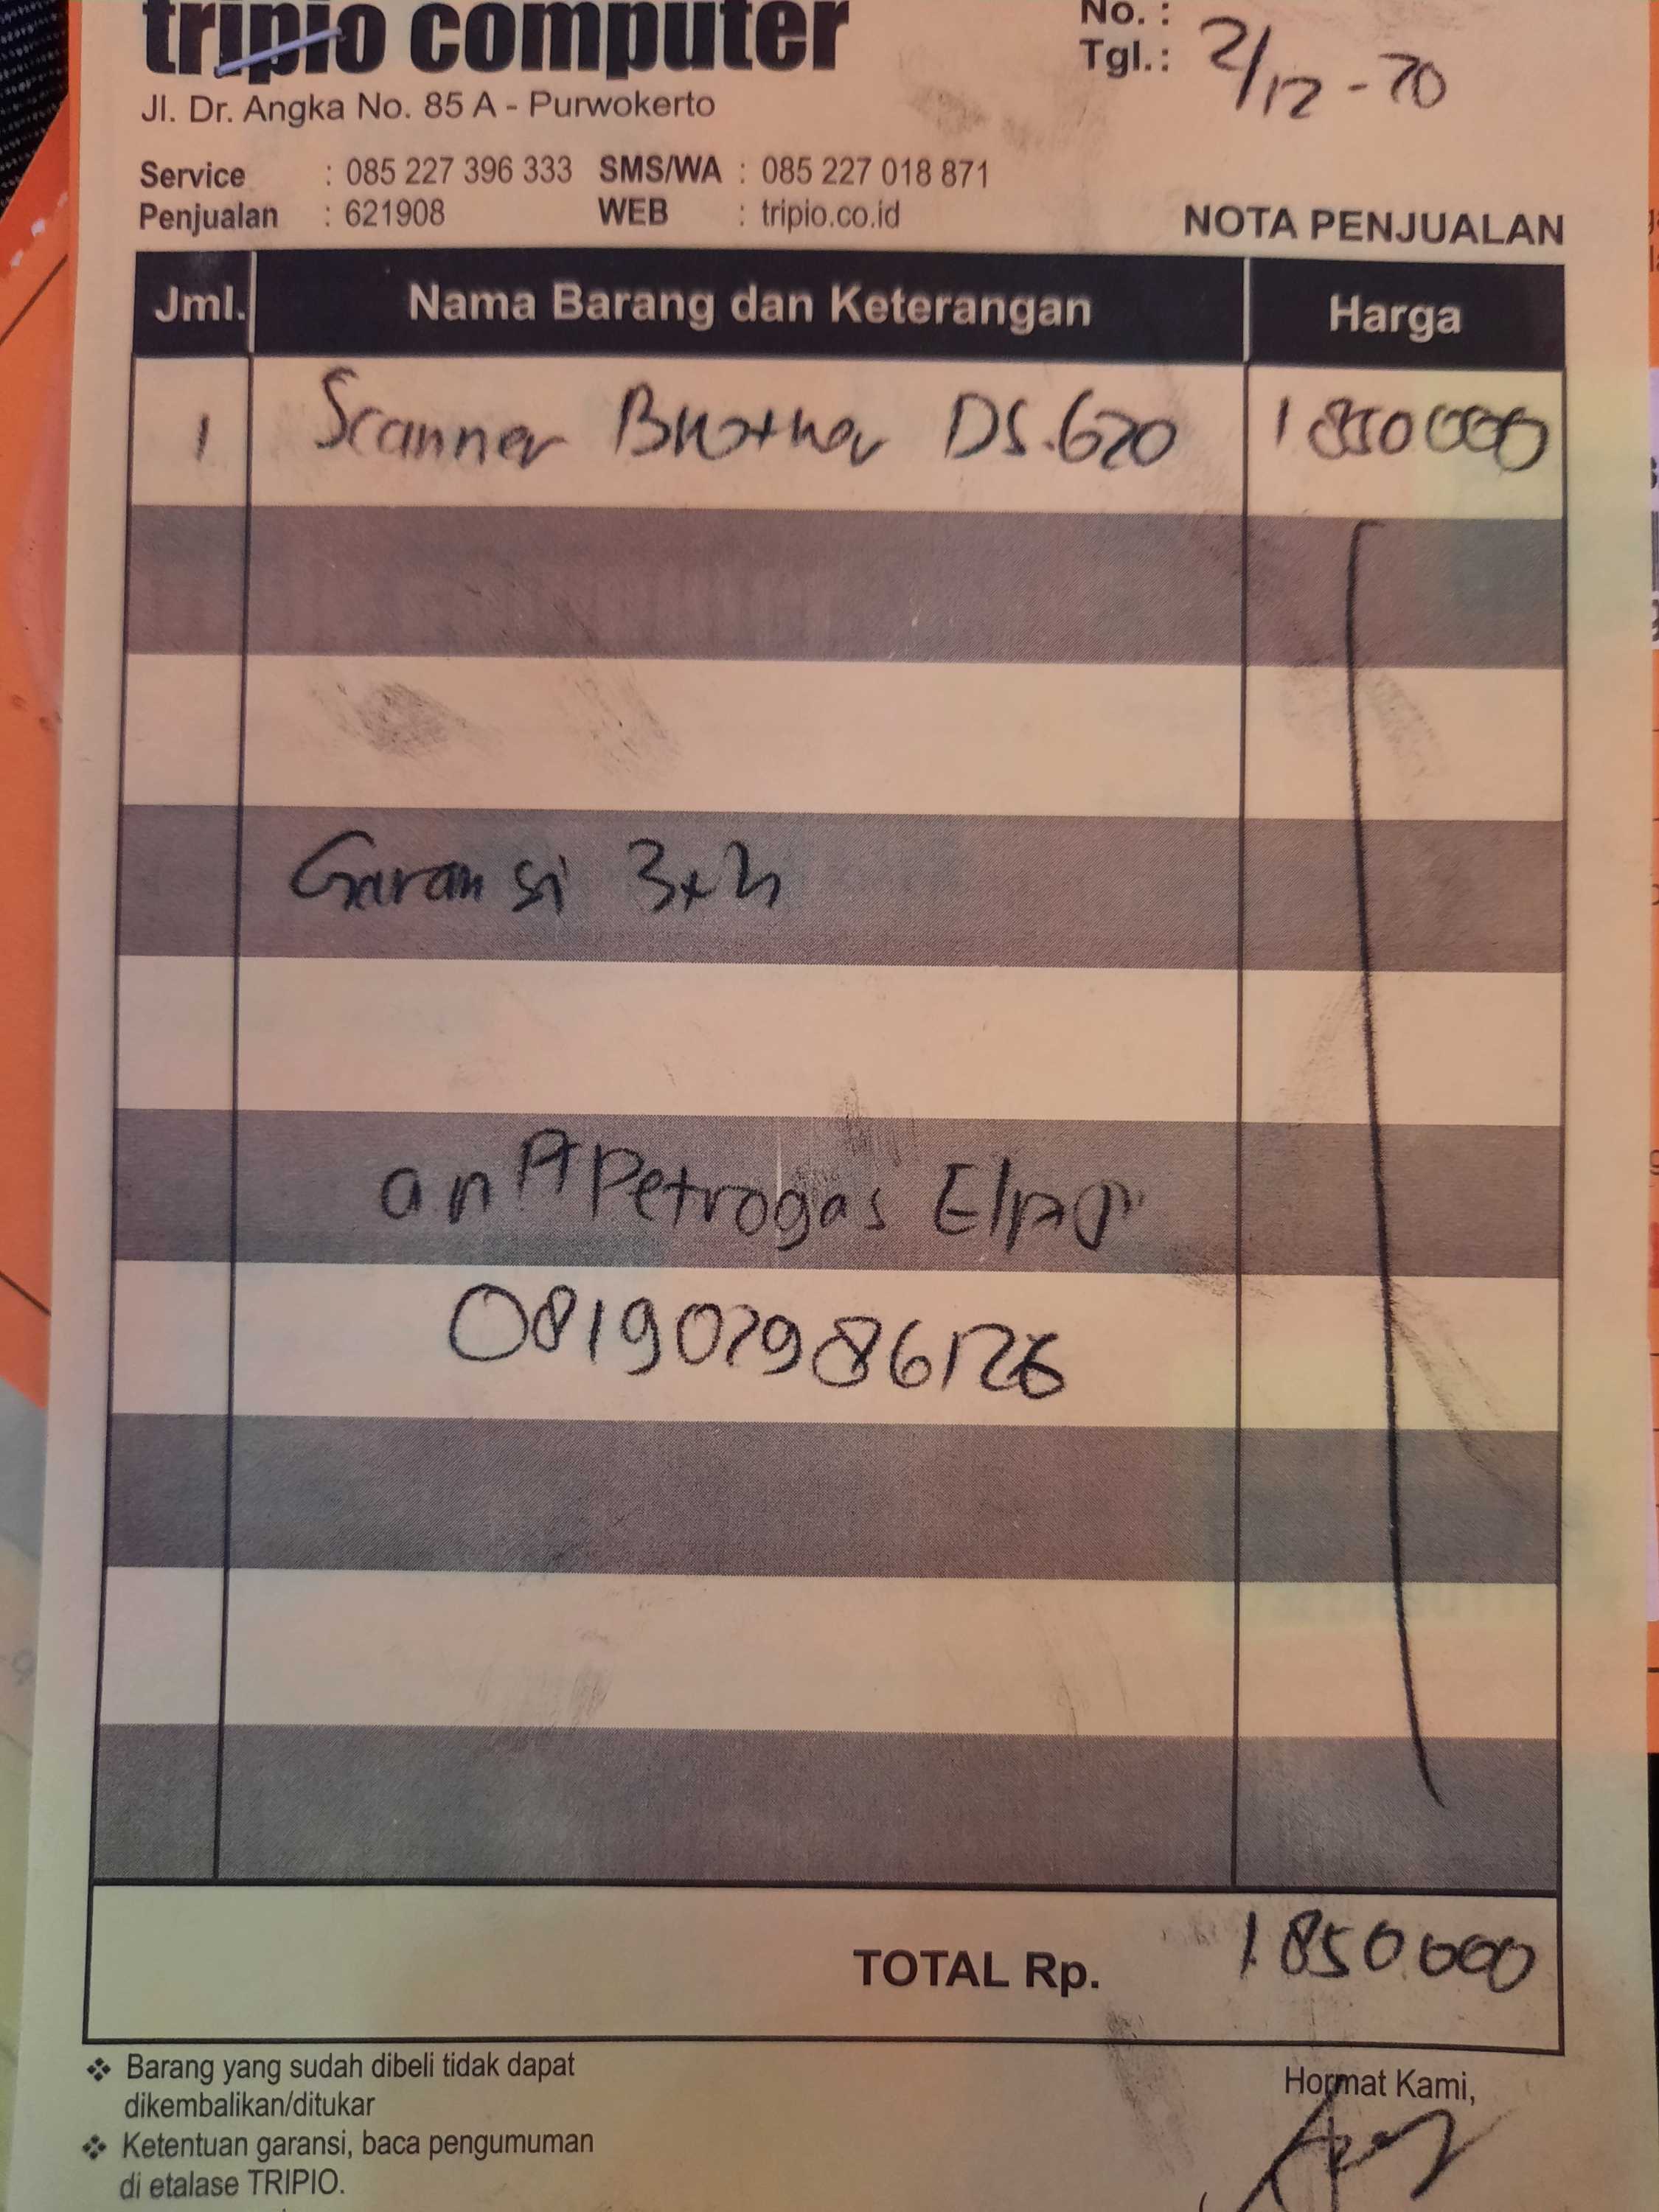 tripio computer
No. :
Tgl.: 2/12-20
Jl. Dr. Angka No. 85 A - Purwokerto
Service : 085 227 396 333 SMS/WA : 085 227 018 871
Penjualan : 621908 WEB : tripio.co.id
NOTA PENJUALAN
Jml. Nama Barang dan Keterangan Harga
1 Scanner Brother DS.620 1850000
Garansi 3th
an PT Petrogas
081902986126
TOTAL Rp. 1.850.000
❖ Barang yang sudah dibeli tidak dapat
dikembalikan/ditukar
❖ Ketentuan garansi, baca pengumuman
di etalase TRIPIO.
Hormat Kami,